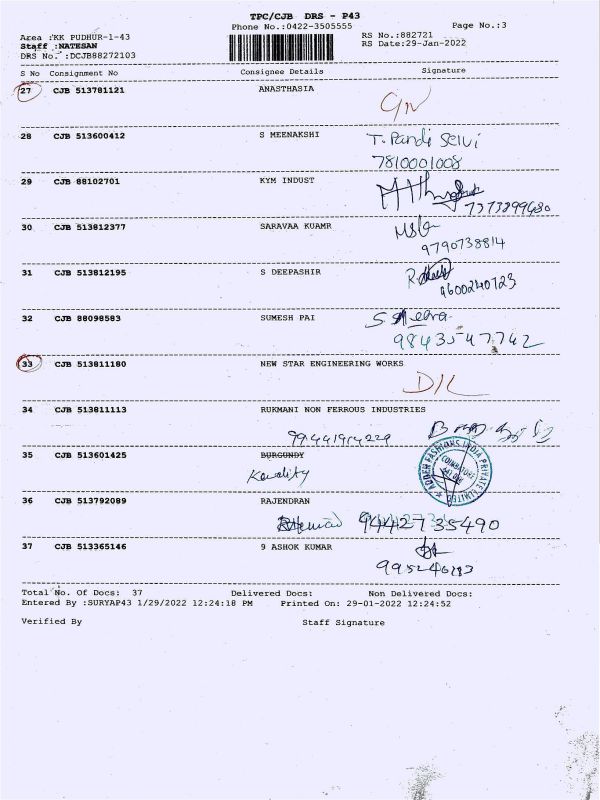 TPC/CJB DRS - P43
Phone No.:0422-3505555
Page No.:3
Area :KK PUDHUR-1-43
RS No.:882721
Staff :NATESAN
RS Date:29-Jan-2022
DRS No. :DCJB88272103
S No Consignment No Consignee Details Signature
27 CJB 513781121 ANASTHASIA
28 CJB 513600412 S MEENAKSHI T. Pandi Selvi
7810001008
29 CJB 88102701 KYM INDUST
7373899680
30 CJB 513812377 SARAVAA KUAMR
9790738814
31 CJB 513812195 S DEEPASHIR
9600240723
32 CJB 88098583 SUMESH PAI
9843547742
33 CJB 513811180 NEW STAR ENGINEERING WORKS
D/L
34 CJB 513811113 RUKMANI NON FERROUS INDUSTRIES
35 CJB 513601425 BURGUNDY
36 CJB 513792089 RAJENDRAN
9442735490
37 CJB 513365146 9 ASHOK KUMAR
Total No. Of Docs: 37 Delivered Docs: Non Delivered Docs:
Entered By :SURYAP43 1/29/2022 12:24:18 PM Printed On: 29-01-2022 12:24:52
Verified By Staff Signature